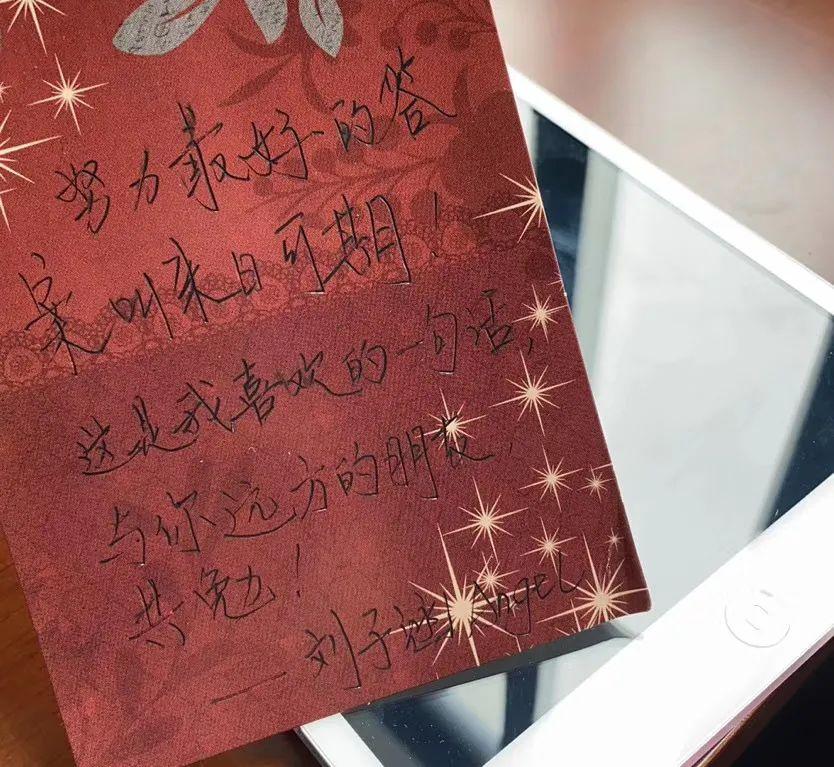 努力最好的答
案叫来日可期!
这是我喜欢的一句话,
与你远方的朋友,
共勉!
——刘子涵 Angel